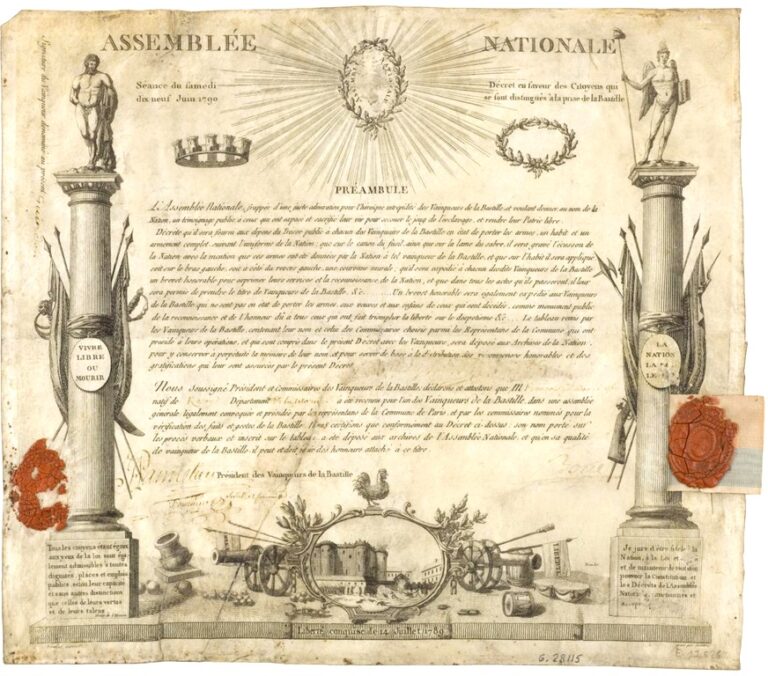 ASSEMBLÉE NATIONALE
Séance du samedi
dix neuf Juin 1790
Décret en faveur des Citoyens qui
se sont distingués à la prise de la Bastille
PRÉAMBULE
L'Assemblée Nationale, frappée d'une juste admiration pour l'héroique intrépidité des Vainqueurs de la Bastille, et voulant donner au nom de la
Nation, un témoignage public, à ceux qui ont exposé et sacrifié leur vie pour secouer le joug de l'esclavage, et rendre leur Patrie libre.
Décrète qu'il sera fourni aux dépens du Trésor public à chacun des Vainqueurs de la Bastille en état de porter les armes, un habit et un
armement complet, suivant l'uniforme de la Nation; que sur le canon du fusil, ainsi que sur la lame du sabre, il sera gravé l'écusson de
la Nation avec la mention que ces armes ont été données par la Nation à tel vainqueur de la Bastille, et que sur l'habit il sera appliqué
soit sur le bras gauche, soit à côté du revers gauche, une couronne murale; qu'il sera expédié à chacun desdits Vainqueurs de la Bastille
un brevet honorable pour exprimer leurs services et la reconnoissance de la Nation, et que dans tous les actes qu'ils passeront, il leur
sera permis de prendre le titre de Vainqueurs de la Bastille. &c. ..... Un brevet honorable sera également expédié aux Vainqueurs
de la Bastille qui ne sont pas en état de porter les armes, aux veuves et aux enfans de ceux qui sont décédés, comme monument public
de la reconnoissance et de l'honneur dû à tous ceux qui ont fait triompher la liberté sur le despotisme &c. Le tableau remis par
les Vainqueurs de la Bastille, contenant leur nom et celui des Commissaires choisis parmi les Représentans de la Commune qui ont
présidé à leurs opérations, et qui sont compris dans le présent Décret avec les Vainqueurs, sera déposé aux Archives de la Nation,
pour y conserver à perpétuité la mémoire de leur nom, et pour servir de base à la distribution des récompenses honorables et des
gratifications qui leur sont assurées par le présent Décret.
Nous soussigné Président et Commissaires des Vainqueurs de la Bastille, déclarons et attestons que M.
natif de Département a été reconnu pour l'un des Vainqueurs de la Bastille, dans une assemblée
générale légalement convoquée et présidée par les représentans de la Commune de Paris, et par les commissaires nommés pour la
vérification des faits et gestes de la Bastille. Nous certifions que conformément au Décret ci-dessus, son nom porté sur
les procès verbaux et inscrit sur le tableau, a été déposé aux archives de l'Assemblée Nationale, et qu'en sa qualité
de vainqueur de la Bastille, il peut et doit jouir des honneurs attachés à ce titre.
Président des Vainqueurs de la Bastille
VIVRE
LIBRE
OU
MOURIR
LA
NATION
LA
LE
Tous les citoyens étant égaux
aux yeux de la loi sont éga-
lement admissibles à toutes
dignités, places et emplois
publics selon leur capacité
et sans autres distinctions
que celles de leurs vertus
et de leurs talens.
Je jure d'être fidèle à la
Nation, à la Loi et
et de maintenir de tout mon
pouvoir la Constitution et
les Décrets de l'Assemblée
Nationale
Liberté conquise le 14 Juillet 1789
G. 28115